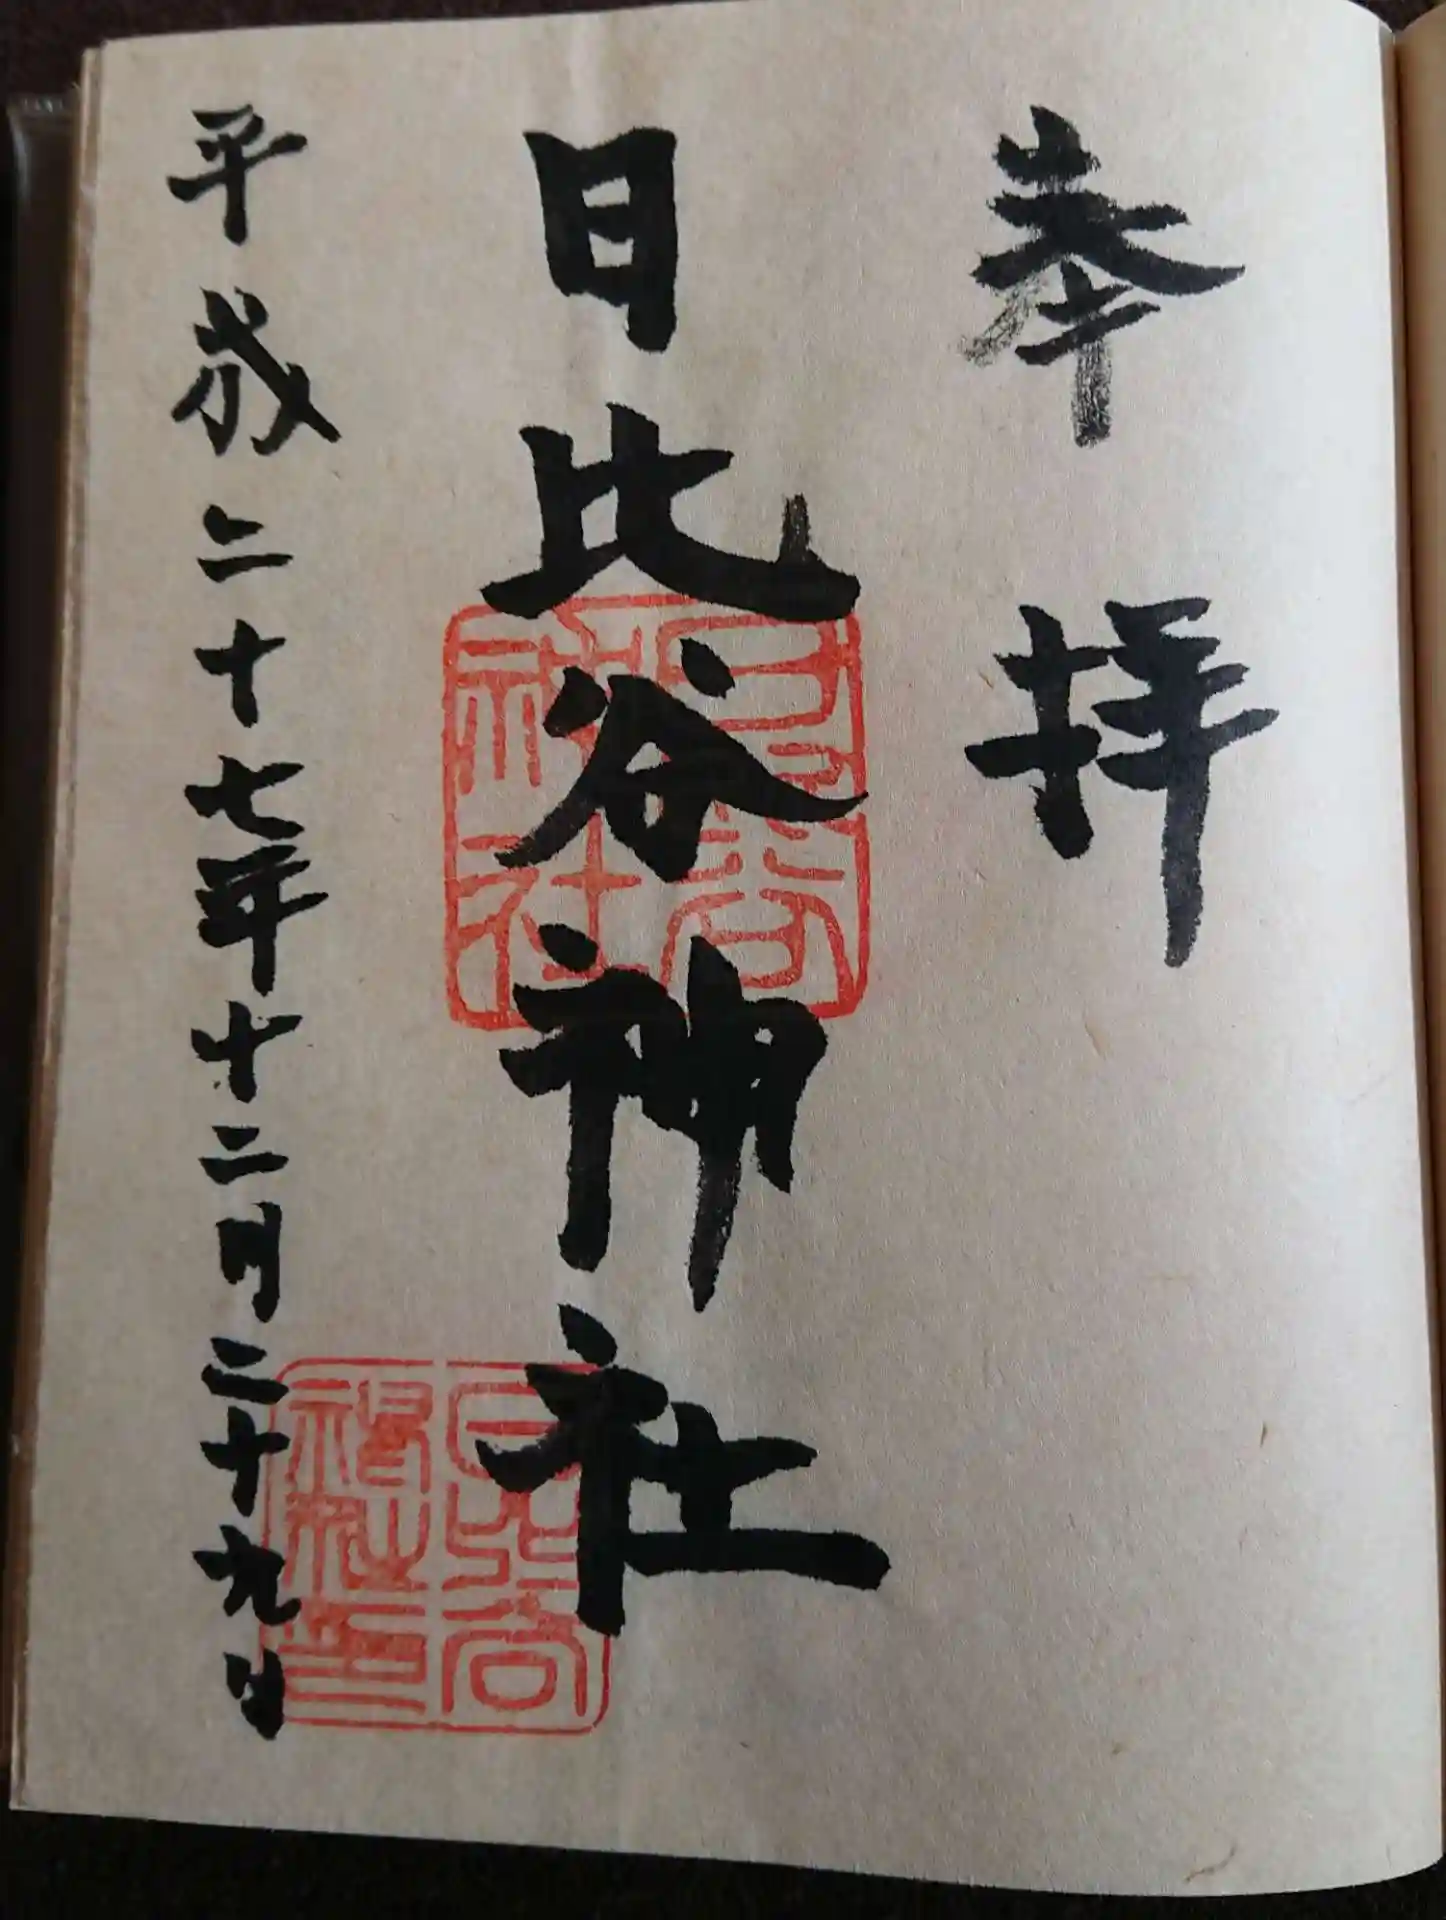 奉拝
日比谷神社
平成二十七年十二月二十九日
日比谷神社
日比谷神社印